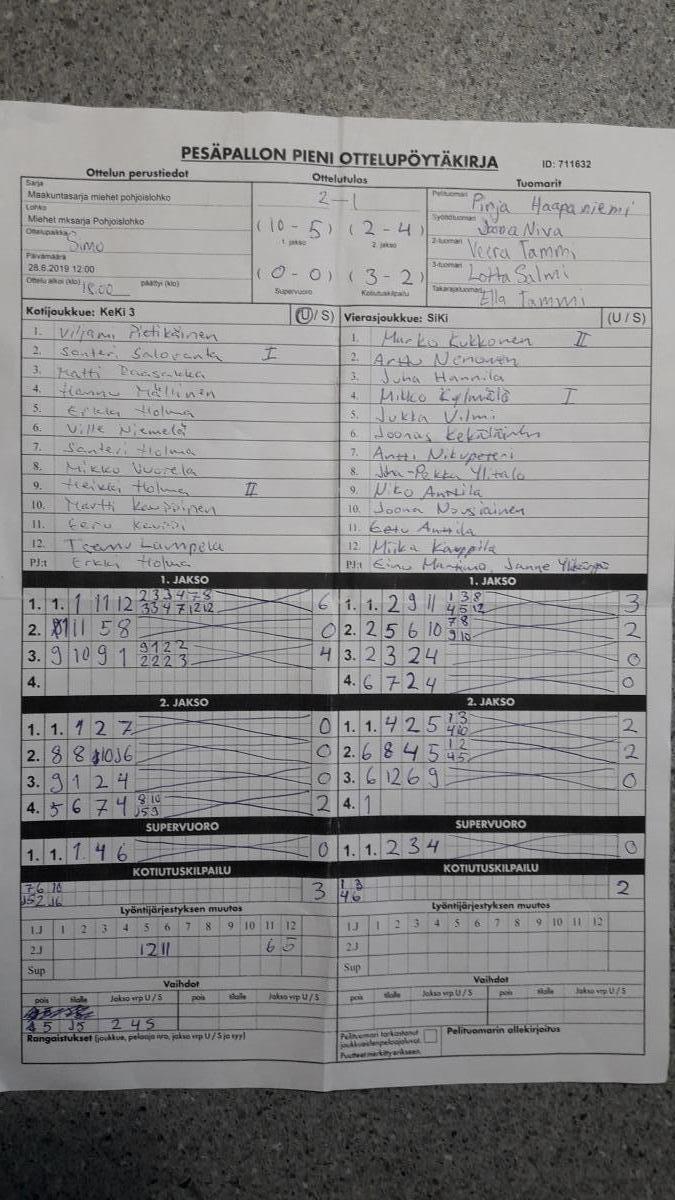 PESÄPALLON PIENI OTTELUPÖYTÄKIRJA
ID: 711632
Ottelun perustiedot
Ottelutulos
Tuomarit
Sarja
Maakuntasarja miehet pohjoislohko
Lohko
Miehet mksarja Pohjoislohko
Ottelupaikka Simo
Päivämäärä
28.6.2019 12:00
Ottelu alkoi (klo) 18.00 päättyi (klo)
2-1
(10-5) (2-4)
1. jakso 2. jakso
(0-0) (3-2)
Supervuoro Kotiutuskilpailu
Pelituomari Pinja Haapaniemi
Syöttötuomari Joona Niva
2-tuomari Veera Tammi
3-tuomari Lotta Salmi
Takarajatuomari Ella Tammi
Kotijoukkue: KeKi 3 (U/S)
1. Viljami Pietikäinen
2. Santeri I
3. Matti
4. Hannu Mällinen
5. Erkki Holma
6. Ville Niemelä
7. Santeri Holma
8. Mikko Vuorela
9. Heikki Holma II
10. Martti Kauppinen
11. Eeru
12. Teemu Lampela
PJ:t Erkki Holma
Vierasjoukkue: SiKi (U/S)
1. Marko Kukkonen II
2. Arttu Nenonen
3. Juha Hannila
4. Mikko Kylmälä I
5. Jukka Vilmi
6. Joonas Kekäläinen
7. Antti Nikupeteri
8. Juha-Pekka Ylitalo
9. Niko Anttila
10. Joona Nousiainen
11. Eetu Anttila
12. Miika Kauppila
PJ:t Eino Janne
1. JAKSO
1. 1. 1 11 12 2 3 3 4 7 8 6
3 3 4 7 12 12
2. 11 5 8 0
3. 9 10 9 1 9 1 2 2 4
2 2 2 3
4.
1. JAKSO
1. 1. 2 9 11 1 3 8 3
4 5 12
2. 2 5 6 10 7 8 2
9 10
3. 2 3 2 4 0
4. 6 7 2 4 0
2. JAKSO
1. 1. 1 2 7 0
2. 8 8 10 J6 0
3. 9 1 2 4 0
4. 5 6 7 4 8 10 2
J5 9
2. JAKSO
1. 1. 4 2 5 1 3 2
4 10
2. 6 8 4 5 1 2 2
4 5
3. 6 12 6 9 0
4. 1
SUPERVUORO
1. 1. 1 4 6 0
SUPERVUORO
1. 1. 2 3 4 0
KOTIUTUSKILPAILU
7 6 10 3
J5 2 J6
KOTIUTUSKILPAILU
1 3 2
4 6
Lyöntijärjestyksen muutos
1.J 1 2 3 4 5 6 7 8 9 10 11 12
2.J 12 11 6 5
Sup
Lyöntijärjestyksen muutos
1.J 1 2 3 4 5 6 7 8 9 10 11 12
2.J
Sup
Vaihdot
pois tilalle Jakso vrp U / S pois tilalle Jakso vrp U / S
5 J5 2 4 S
Vaihdot
pois tilalle Jakso vrp U / S pois tilalle Jakso vrp U / S
Rangaistukset (joukkue, pelaaja nro, jakso vrp U/S ja syy)
Pelituomari tarkastanut
joukkueidenpelaajaluvat.
Puutteet merkitty erikseen.
Pelituomarin allekirjoitus